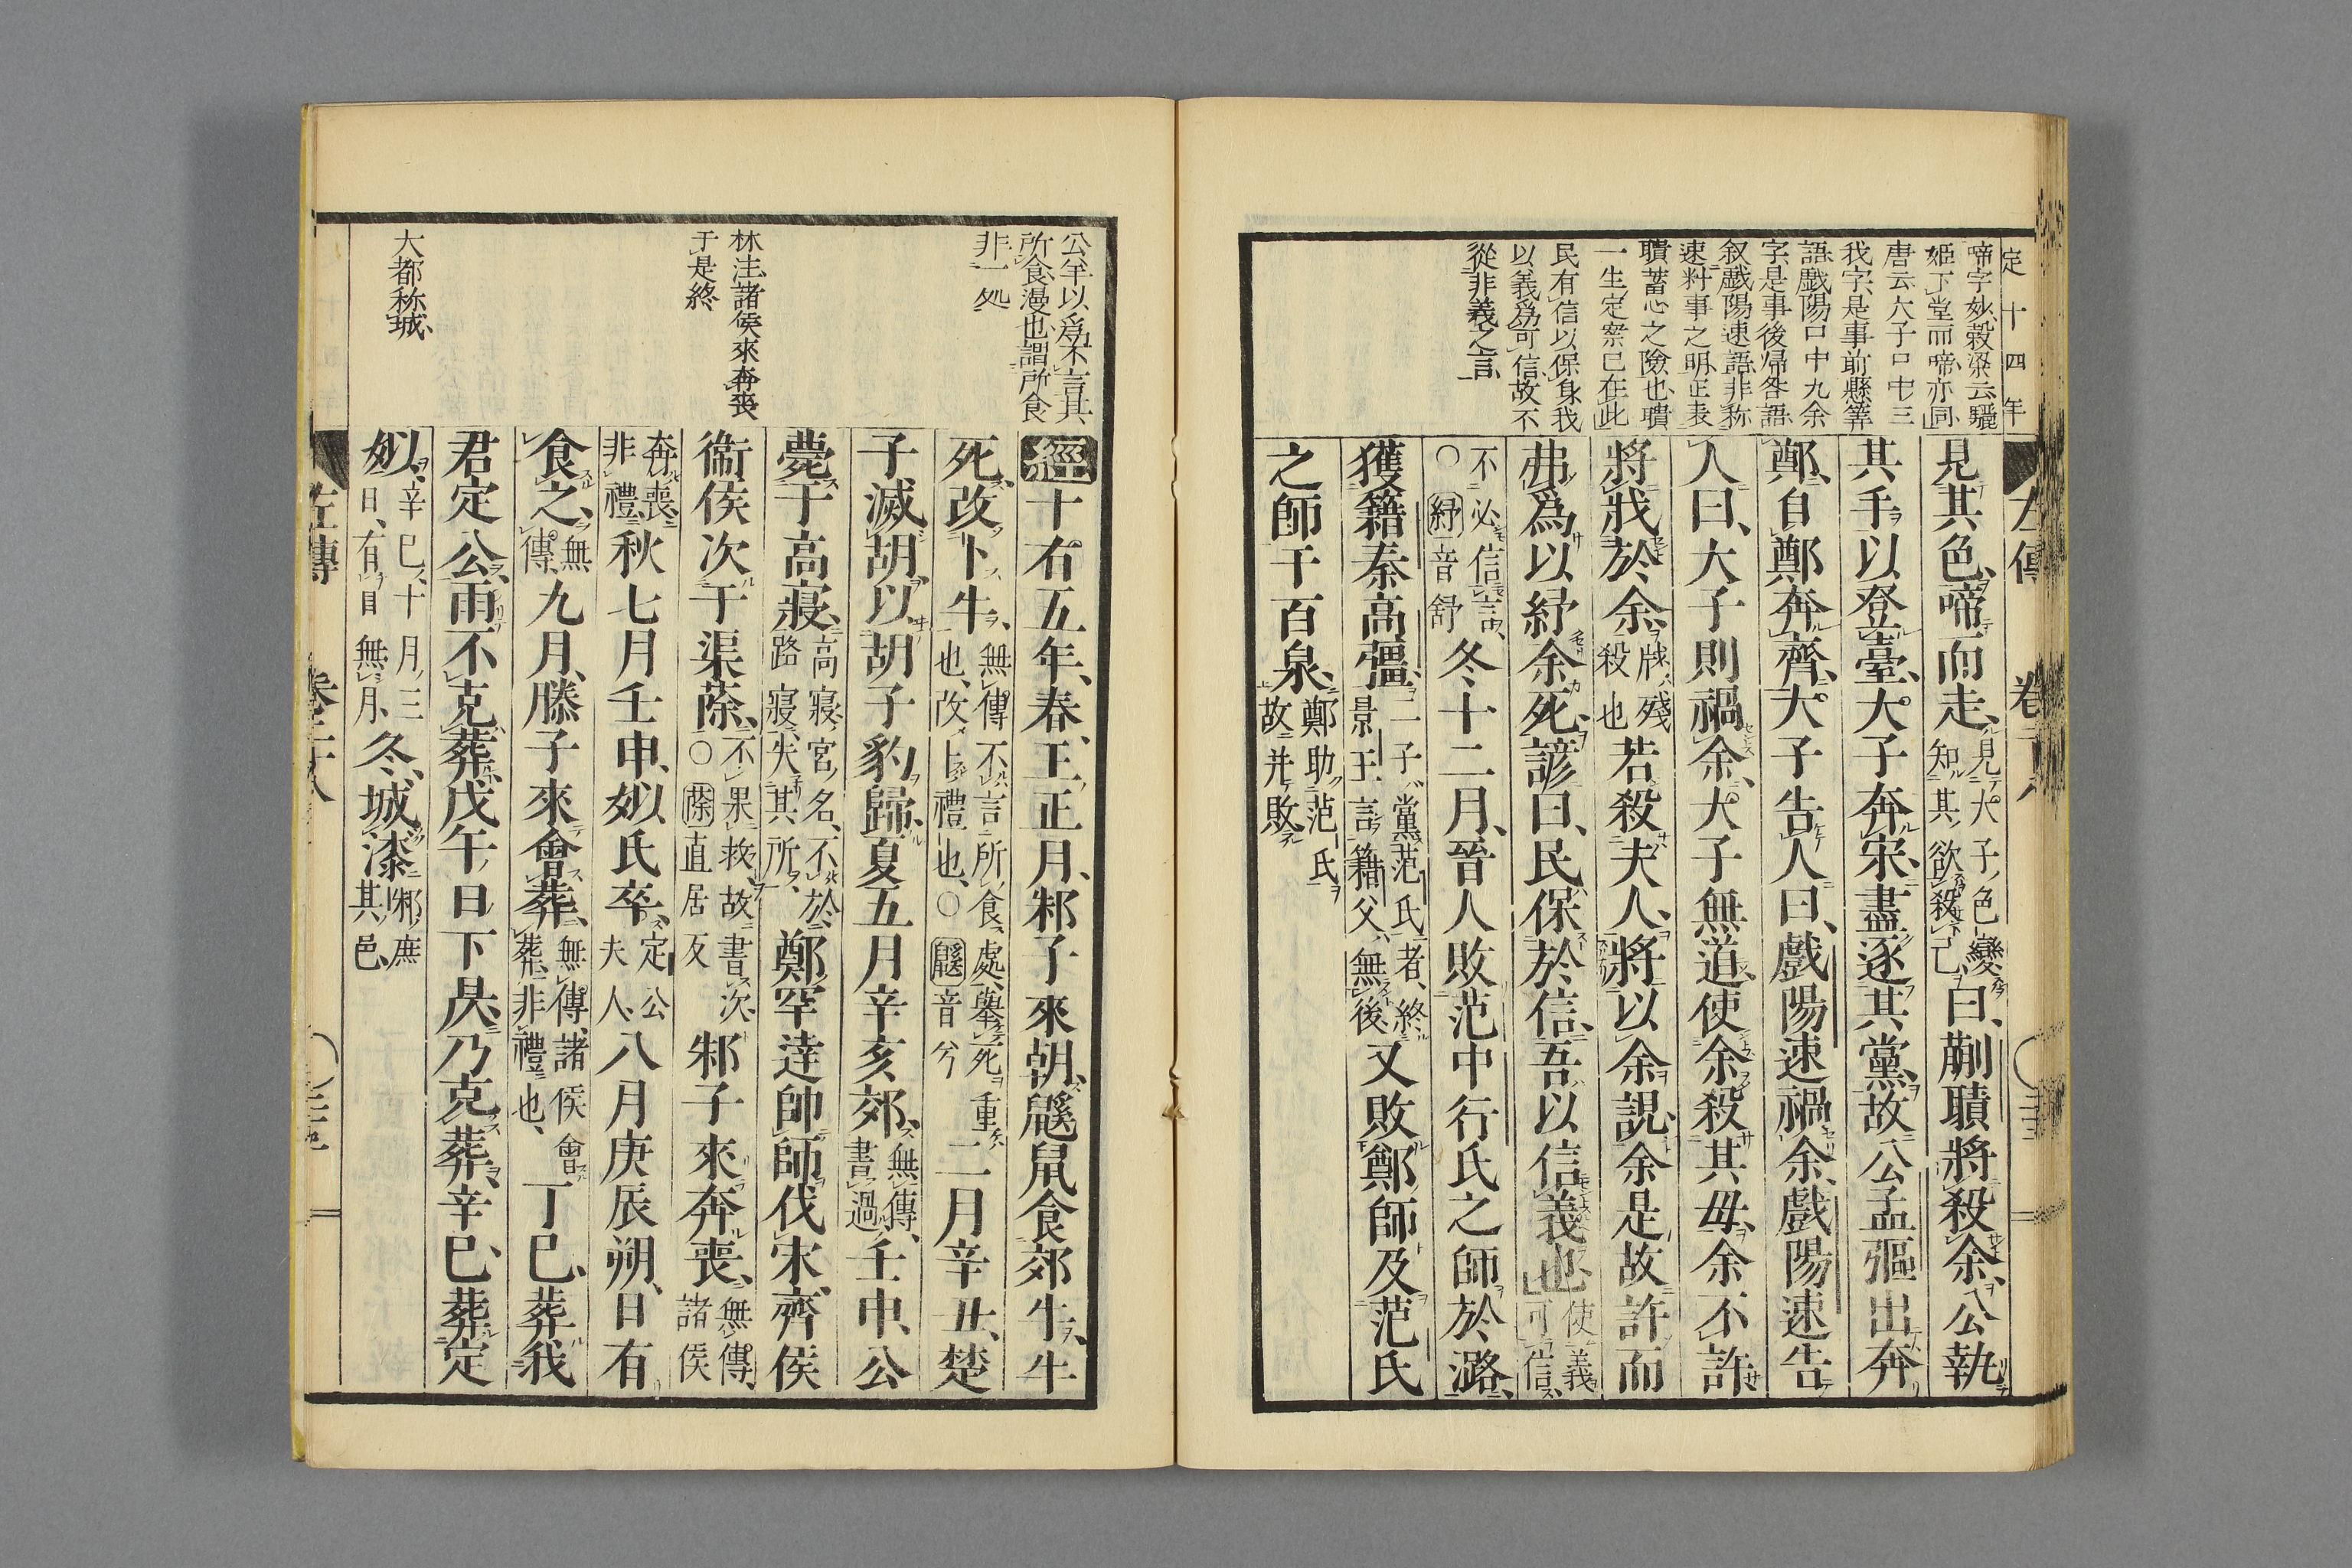 定十四年
啼字妙、穀梁云驪
姫下堂而啼、亦同
唐云大子口中三
我字、是事前懸筭
語、戲陽口中九余
字、是事後帰咎語
叙戲陽速語、非称
速料事之明、正表
聵蓄心之險也、聵
一生定案已在此
民有信以保身、我
以義爲可信、故不
從非義之言、
左傳 卷二十八
見其色、啼而走、見大子色變知其欲殺己、曰、蒯聵將殺余、公執
其手以登臺、大子奔宋、盡逐其黨、故公孟彄出奔
鄭、自鄭奔齊、大子告人曰、戲陽速禍余、戲陽速告
人曰、大子則禍余、大子無道、使余殺其母、余不許
將戕於余、戕、殘殺也若殺夫人、將以余說、余是故許而
弗爲、以紓余死、諺曰、民保於信、吾以信義也使義可信、
不必信言、○紓音舒冬十二月、晉人敗范中行氏之師於潞、
獲籍秦高彊、二子黨范氏者、終景王言籍父無後、又敗鄭師及范氏
之師于百泉、鄭助范氏故并敗
公羊以爲不言其
所食漫也、謂所食
非一処
林注、諸侯來奔喪
于是終、
大都称城、
經十有五年、春、王正月、邾子來朝、鼷鼠食郊牛、牛
死、改卜牛、無傳不言所食處、擧死重也、改卜禮也、○鼷音兮二月辛丑、楚
子滅胡、以胡子豹歸、夏五月辛亥郊、無傳、書過、壬申、公
薨于高寢、高寢宮名、不於路寢、失其所、鄭罕達帥師伐宋、齊侯
衞侯次于渠蒢、不果救故書次、○蒢直居反邾子來奔喪、無傳、諸侯
奔喪、非禮、秋七月壬申、姒氏卒、定公夫人、八月庚辰朔、日有
食之、無傳、九月、滕子來會葬、無傳、諸侯會葬、非禮也、丁巳、葬我
君定公、雨不克葬、戊午日下昃、乃克葬、辛巳、葬定
姒、辛巳十月三日、有日無月、冬、城漆、邾庶其邑、
左傳 卷二十八